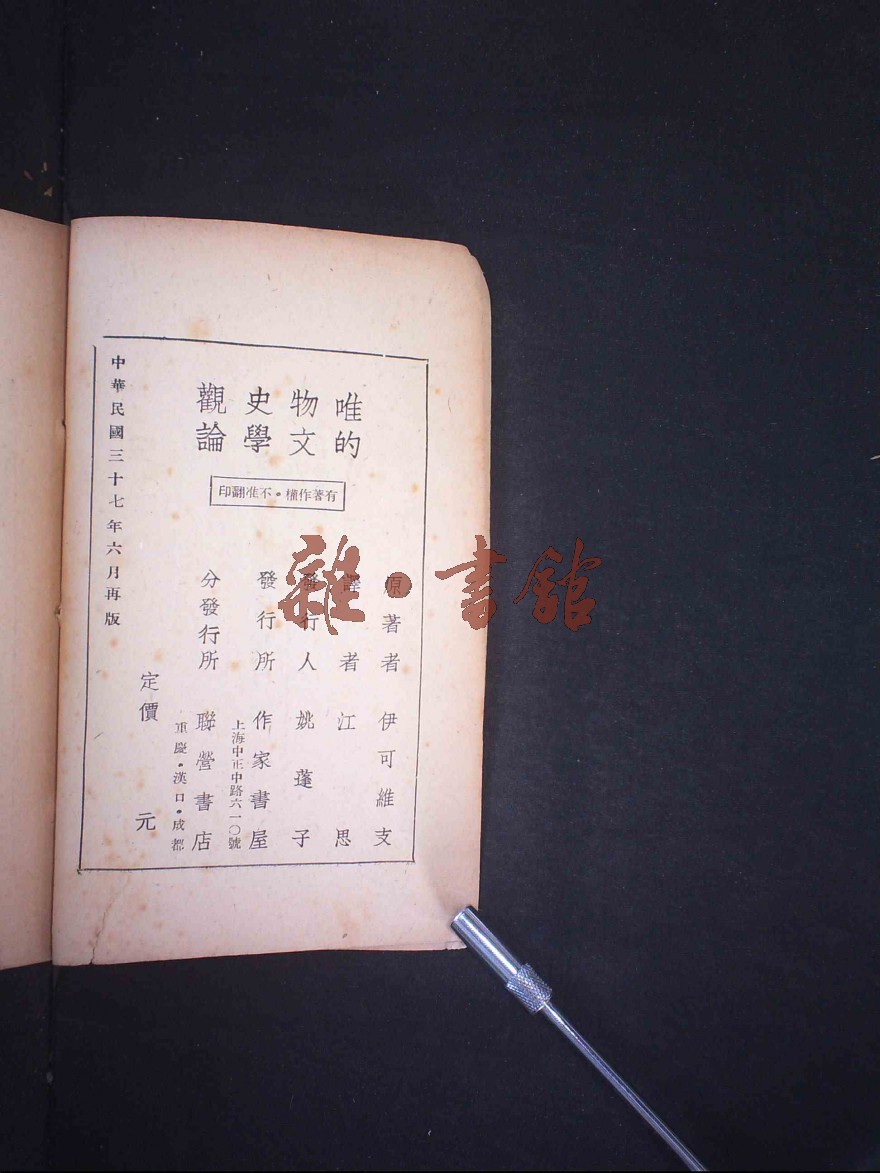 唯物史觀
的文學論
有著作權•不准翻印
原著者 伊可維支
譯者 江思
發行人 姚蓬子
發行所 作家書屋
上海中正中路六一〇號
分發行所 聯營書店
重慶•漢口•成都
定價 元
中華民國三十七年六月再版
雜•書館